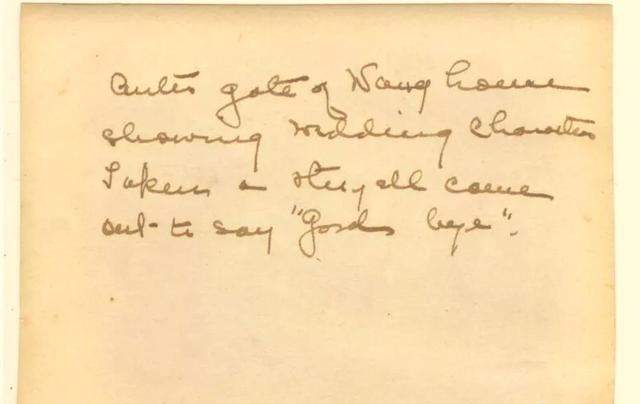 Outer gate of Wang house
showing wedding characters
Taken as they all came
out to say "Good bye".